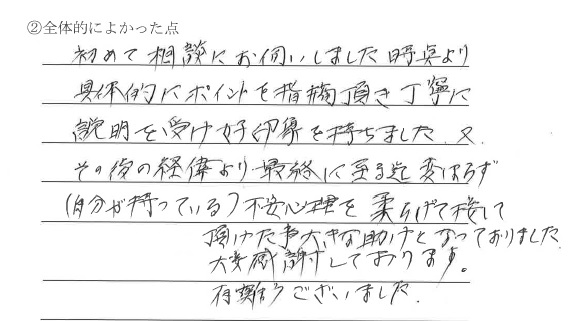 ②全体的によかった点
初めて相談にお伺いしました時点より
具体的にポイントを指摘頂き丁寧に
説明を受け好印象を持ちました.又.
その後の経偉より最終に至る迄変はらず
(自分が持っている)不安心理を柔らげて接して
頂けた事大きな助けとなっておりました
大変感謝しております。
有難うございました.